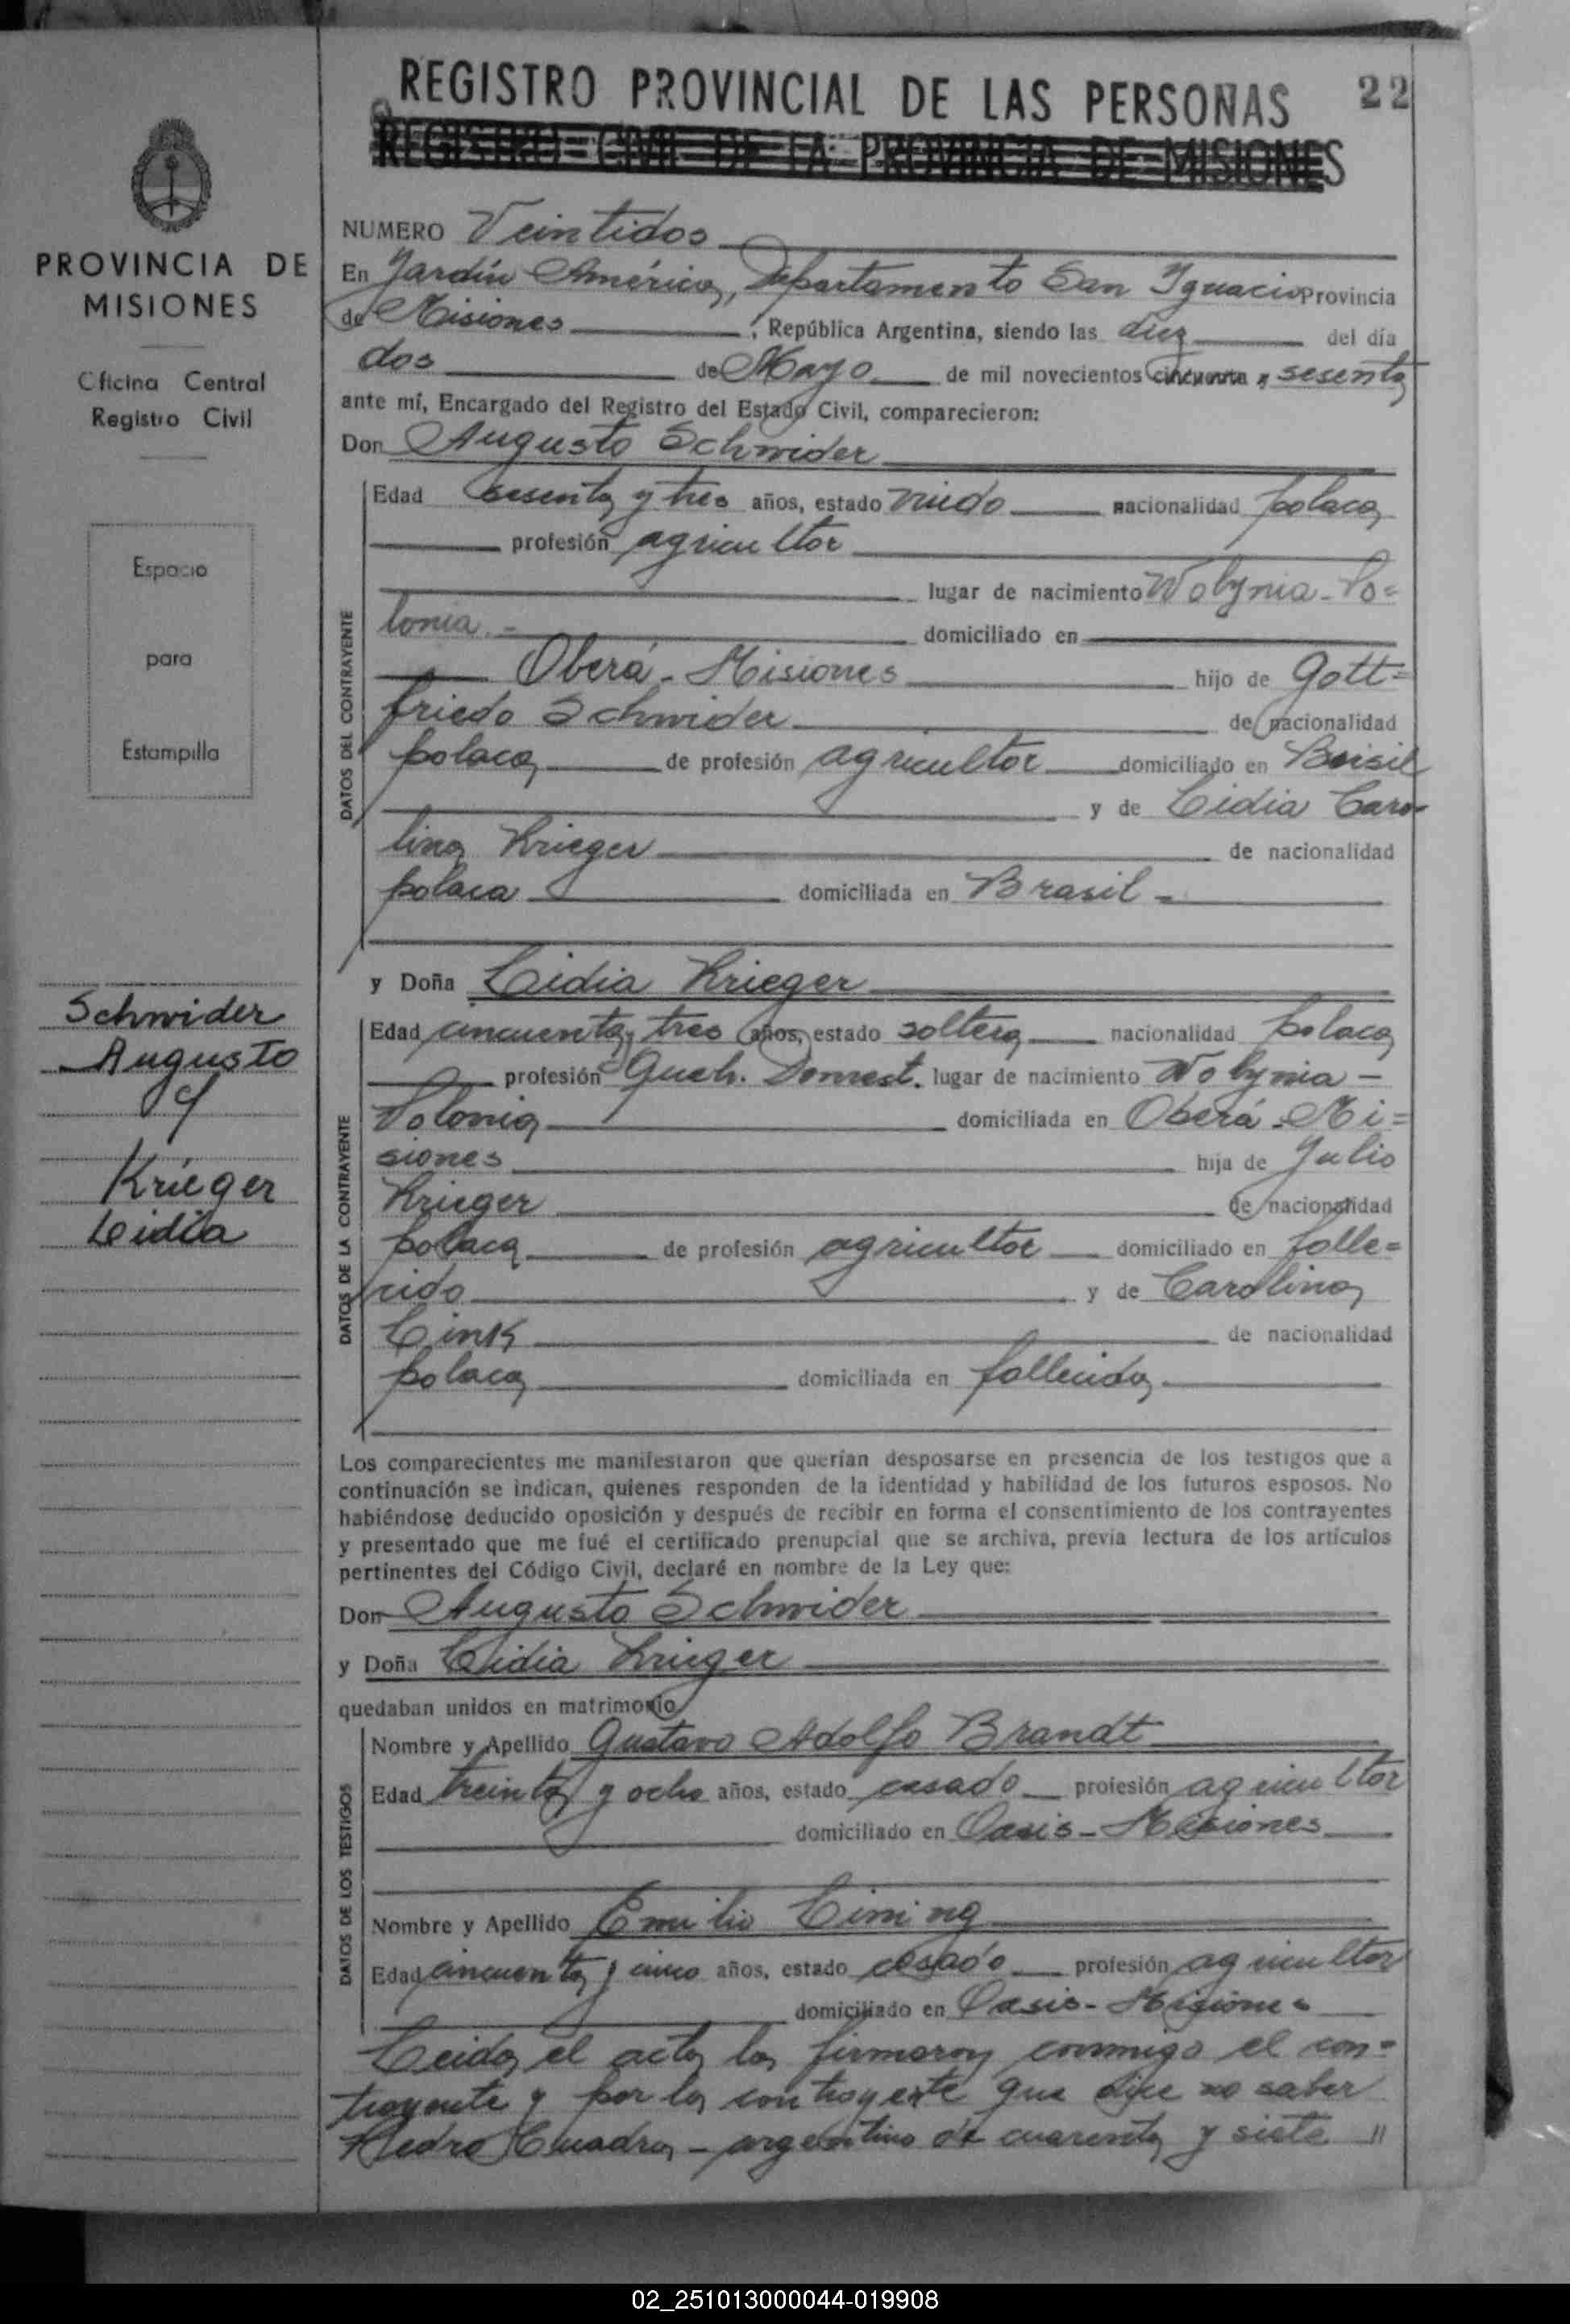 REGISTRO PROVINCIAL DE LAS PERSONAS 22
REGISTRO CIVIL DE LA PROVINCIA DE MISIONES
PROVINCIA DE
MISIONES
Oficina Central
Registro Civil
Espacio
para
Estampilla
Schwider
Augusto
y
Krieger
Lidia
NUMERO Veintidos
En Jardín América, Departamento San Ignacio Provincia
de Misiones, República Argentina, siendo las diez del día
dos de Mayo de mil novecientos cincuenta y sesenta
ante mí, Encargado del Registro del Estado Civil, comparecieron:
Don Augusto Schwider
DATOS DEL CONTRAYENTE
Edad sesenta y tres años, estado viudo nacionalidad polaca
profesión agricultor
lugar de nacimiento Wolynia - Po=
lonia.- domiciliado en
Oberá - Misiones hijo de Gott=
friedo Schwider de nacionalidad
polaca de profesión agricultor domiciliado en Brasil
y de Lidia Caro-
lina Krieger de nacionalidad
polaca domiciliada en Brasil -
y Doña Lidia Krieger
DATOS DE LA CONTRAYENTE
Edad cincuenta y tres años, estado soltera nacionalidad polaca
profesión Queh. Domest. lugar de nacimiento Wolynia -
Polonia domiciliada en Oberá - Mi=
siones hija de Julio
Krieger de nacionalidad
polaca de profesión agricultor domiciliado en falle=
cido y de Carolina
Link de nacionalidad
polaca domiciliada en fallecida
Los comparecientes me manifestaron que querían desposarse en presencia de los testigos que a
continuación se indican, quienes responden de la identidad y habilidad de los futuros esposos. No
habiéndose deducido oposición y después de recibir en forma el consentimiento de los contrayentes
y presentado que me fué el certificado prenupcial que se archiva, previa lectura de los artículos
pertinentes del Código Civil, declaré en nombre de la Ley que:
Don Augusto Schwider
y Doña Lidia Krieger
quedaban unidos en matrimonio
DATOS DE LOS TESTIGOS
Nombre y Apellido Gustavo Adolfo Brandt
Edad treinta y ocho años, estado casado profesión agricultor
domiciliado en Oasis - Misiones
Nombre y Apellido Emilio
Edad cincuenta y cinco años, estado casado profesión agricultor
domiciliado en Oasis - Misiones
Leida el acta la firmaron conmigo el con=
trayente y por la contrayente que dice no saber
Pedro Cuadra - argentino de cuarenta y siete //
02_251013000044-019908